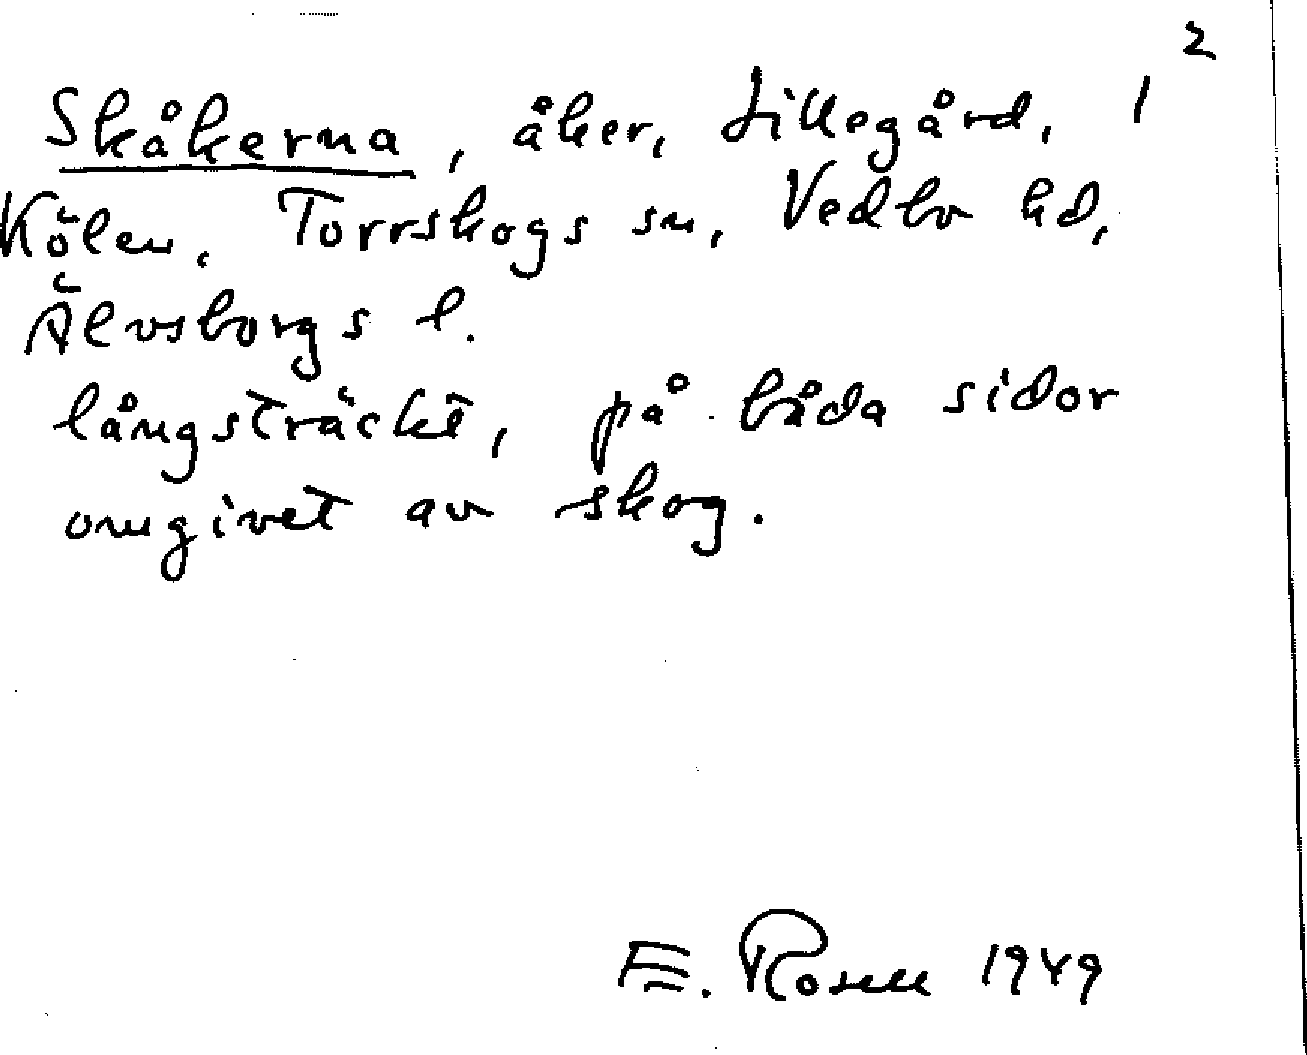 Skåkerna, åker, Lillegård, 1²
Kölen, Torrskogs sn, Vedbo hd,
Älvsborgs l.
långsträckt, på båda sidor
omgivet av skog.
E. Rosell 1949